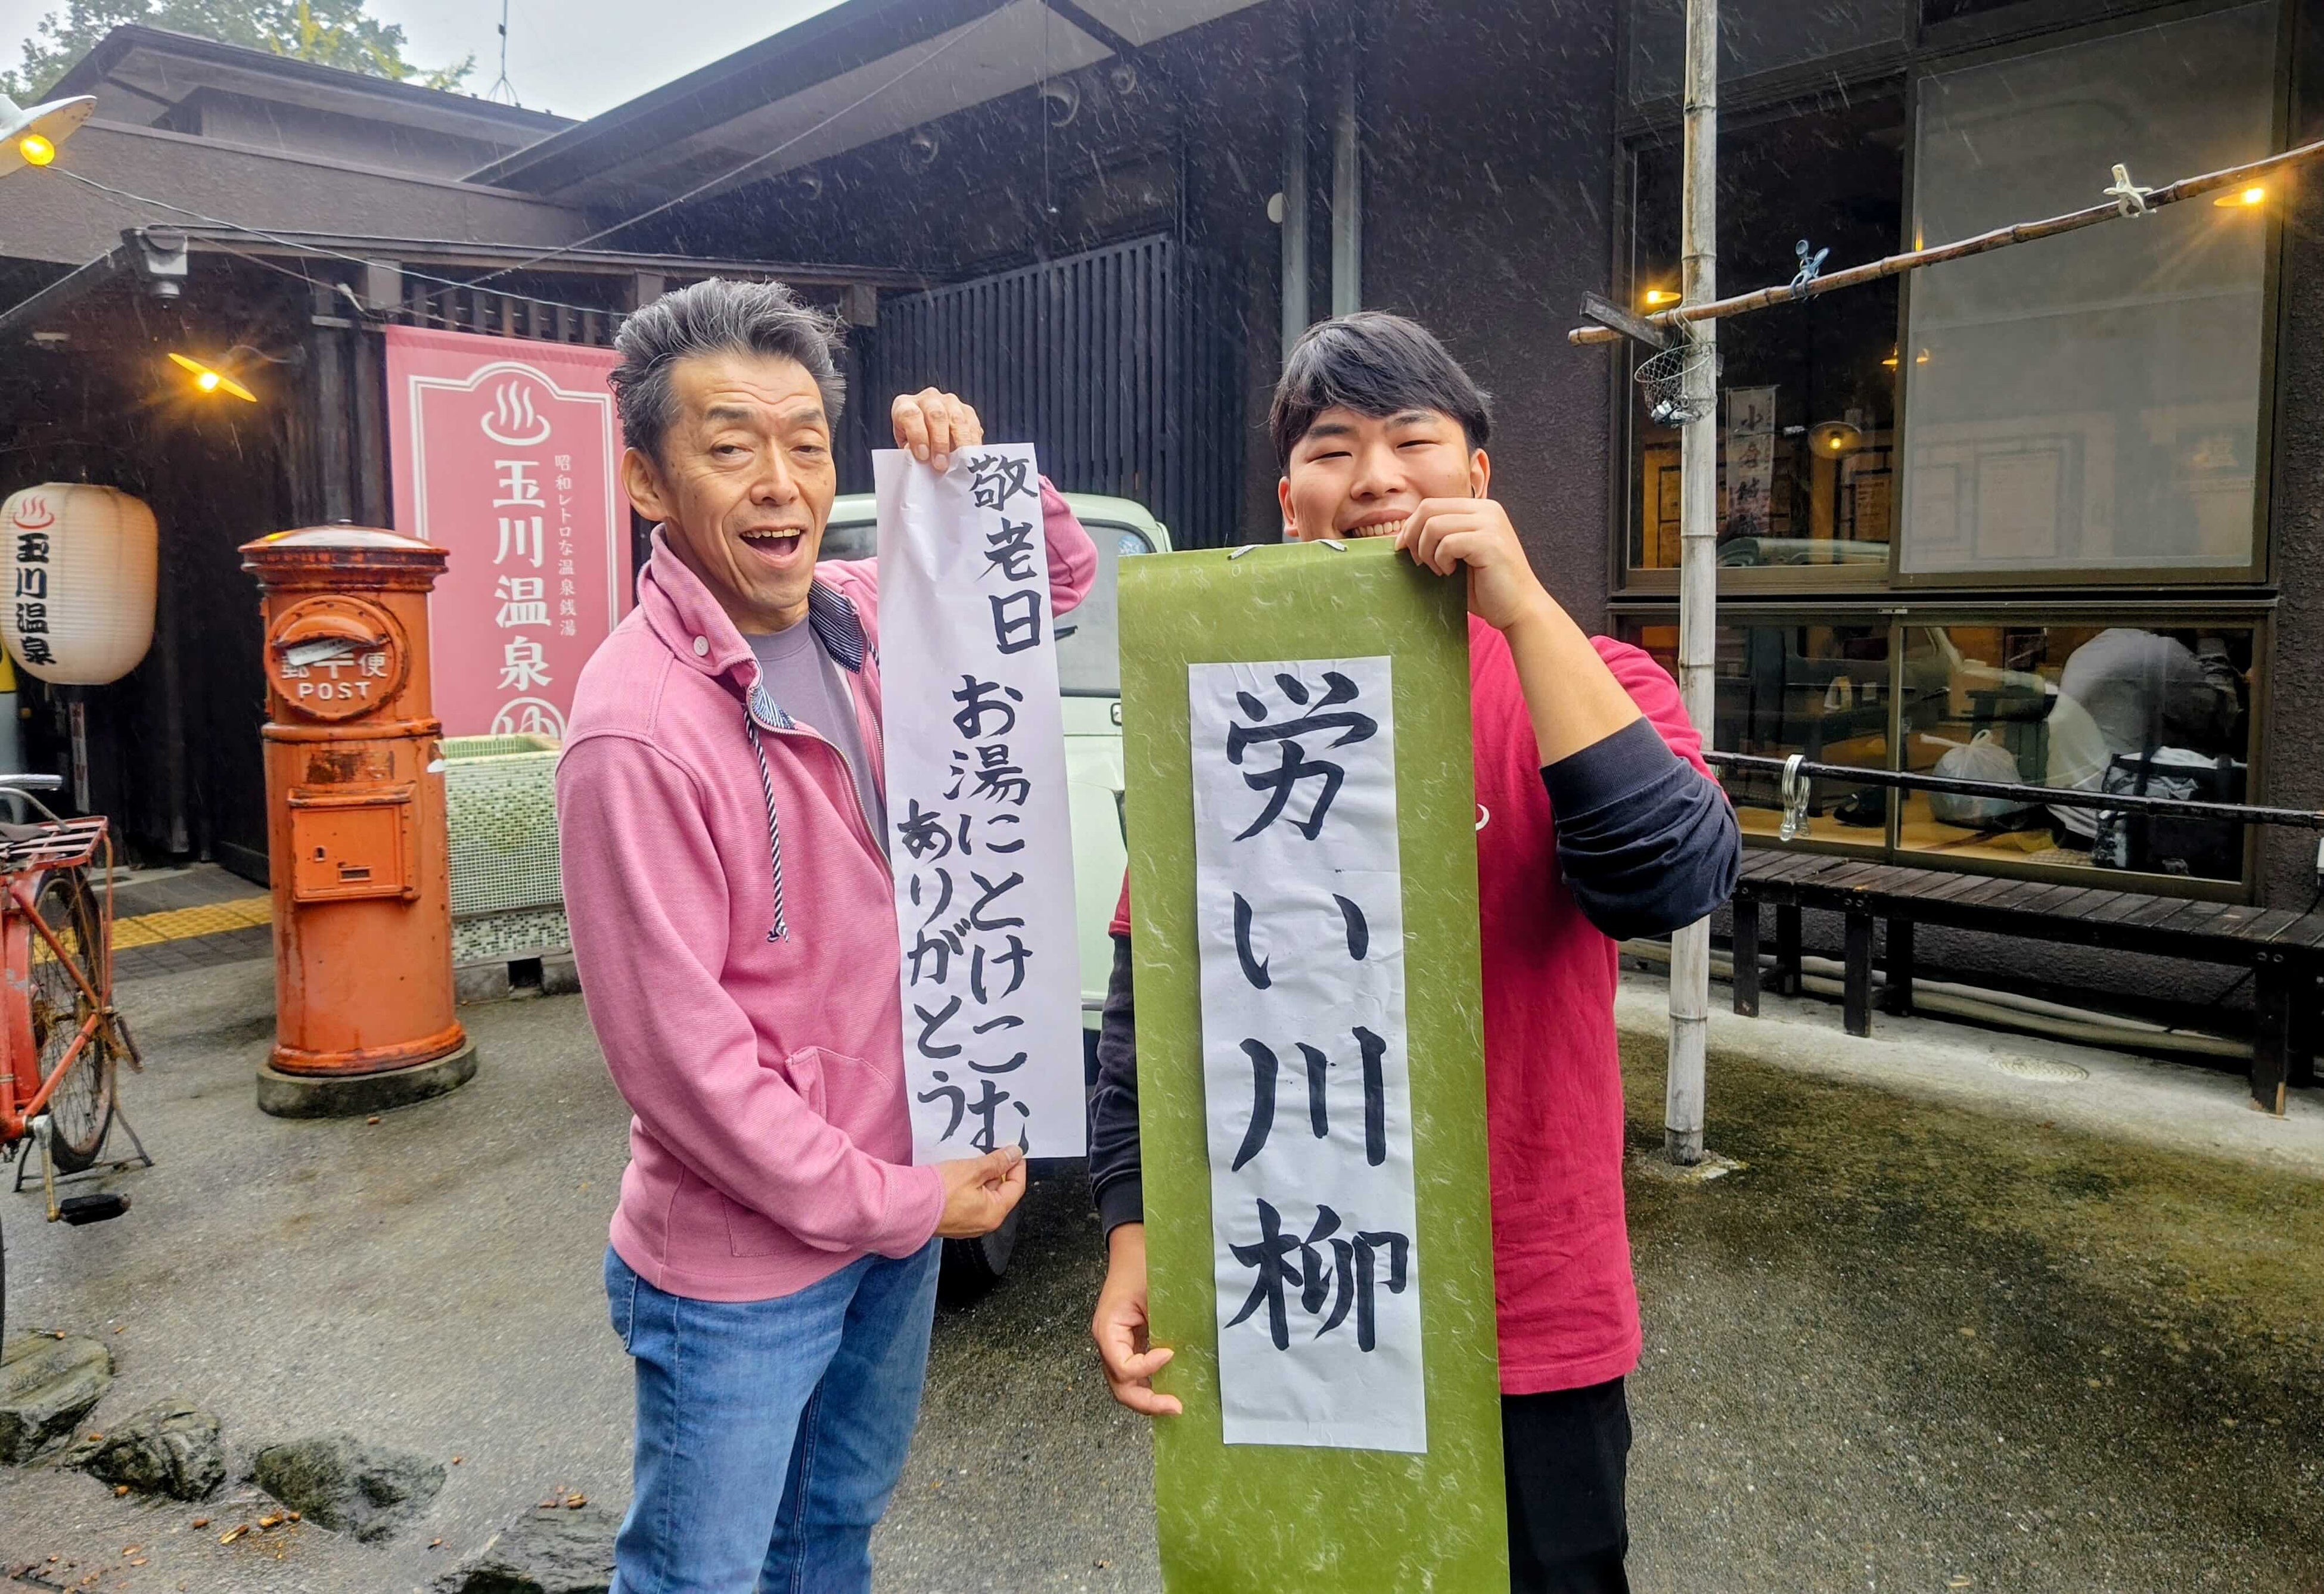 玉川温泉
郵便
POST
昭和レトロな温泉銭湯
玉川温泉
ゆ
敬老日
お湯にとけこむ
ありがとう
労い川柳